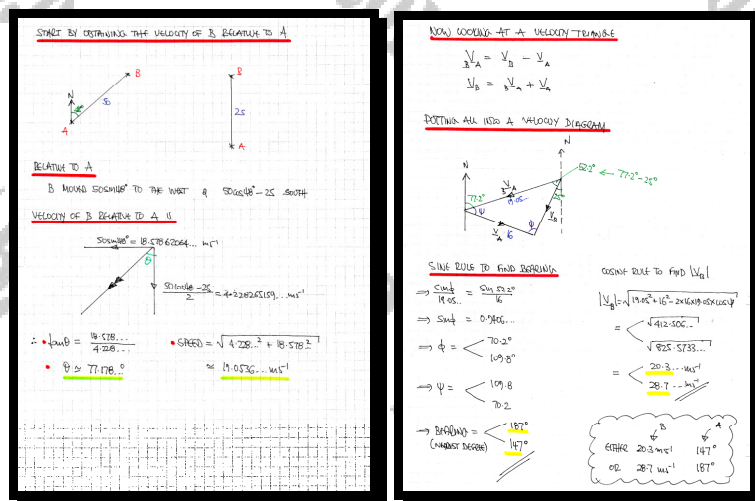 START BY OBTAINING THE VELOCITY OF B RELATIVE TO A
B
N
50
A
B
25
A
RELATIVE TO A
B MOVED 50sin48° TO THE WEST & 50cos48° - 25 SOUTH
VELOCITY OF B RELATIVE TO A IS
50sin48° = 18.57862064... ms⁻¹
θ
50cos48 - 25
2
= 4.228265159... ms⁻¹
∴ • tanθ = 18.578... / 4.228...
• SPEED = √4.228...² + 18.578²
• θ ≃ 77.178...°
≈ 19.0536... ms⁻¹
NOW LOOKING AT A VELOCITY TRIANGLE
BVA = VB - VA
VB = BVA + VA
PUTTING ALL INTO A VELOCITY DIAGRAM
N
N
52.2° ← 77.2° - 25°
BVA
77.2°
19.05...
25°
ψ
VB
VA
16
ϕ
SINE RULE TO FIND BEARING
⇒ sinϕ / 19.05.. = sin 52.2° / 16
⇒ sinϕ = 0.9406...
⇒ ϕ = 70.2° 109.8°
⇒ ψ = 109.8 70.2
⇒ BEARING = 187° 147°
(NEAREST DEGREE)
COSINE RULE TO FIND |VB|
|VB| = √19.05² + 16² - 2×16×19.05×cosψ
= √412.506... √825.5733...
= 20.3... ms⁻¹ 28.7... ms⁻¹
B A
EITHER 20.3 ms⁻¹ 147°
OR 28.7 ms⁻¹ 187°